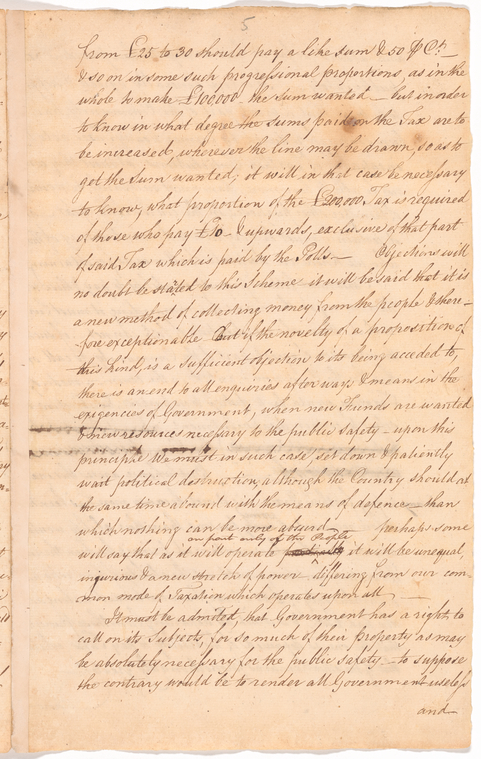 5
from £25 to 30 should pay a like sum & 50 ⅌ Ct.
& so on in some such progressional proportions, as in the
whole to make £100,000 the sum wanted — but in order
to know in what degree the sums paid on the Tax are to
be increased, wherever the line may be drawn, so as to
get the Sum wanted; it will in that case be necessary
to know, what proportion of the £300,000, Tax is required
of those who pay £10 & upwards, exclusive of that part
of said Tax which is paid by the Polls — Objections will
no doubt be stated to this Scheme it will be said that it is
a new method of collecting money from the people & there-
fore exceptionable But if the novelty of a proposition of
this kind, is a sufficient objection to its being acceded to,
there is an end to all enquiries after ways & means in the
exigencies of Government, when new Funds are wanted
& new resources necessary to the public safety — upon this
principle We must in such case, set down & patiently
wait political destruction, although the Country should at
the same time abound with the means of defence — than
which nothing can be more absurd — perhaps some
on part only of the People
will say that as it will operate it will be unequal,
injurious & a new stretch of power differing from our com-
mon mode of Taxation which operates upon all —
It must be admitted, that Government has a right, to
call on its Subjects, for so much of their property as may
be absolutely necessary for the public Safety — to suppose
the contrary would be to render all Government useless
and